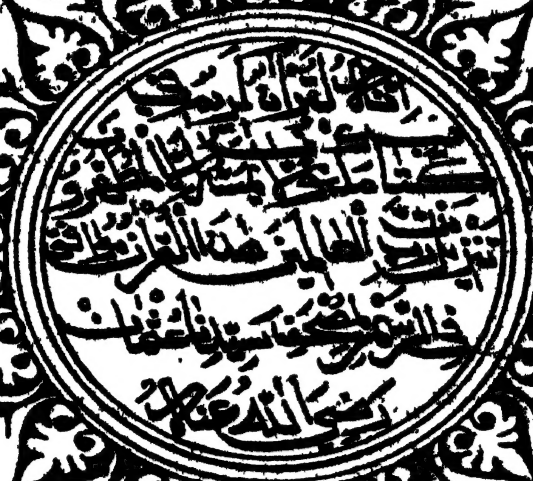 إنه لقرآن كريم في
كتاب مكنون لا يمسه إلا المطهرون
تنزيل من رب العالمين هذا القرآن مطابق
في الرسم لمصحف سيدنا عثمان
رضي الله عنه